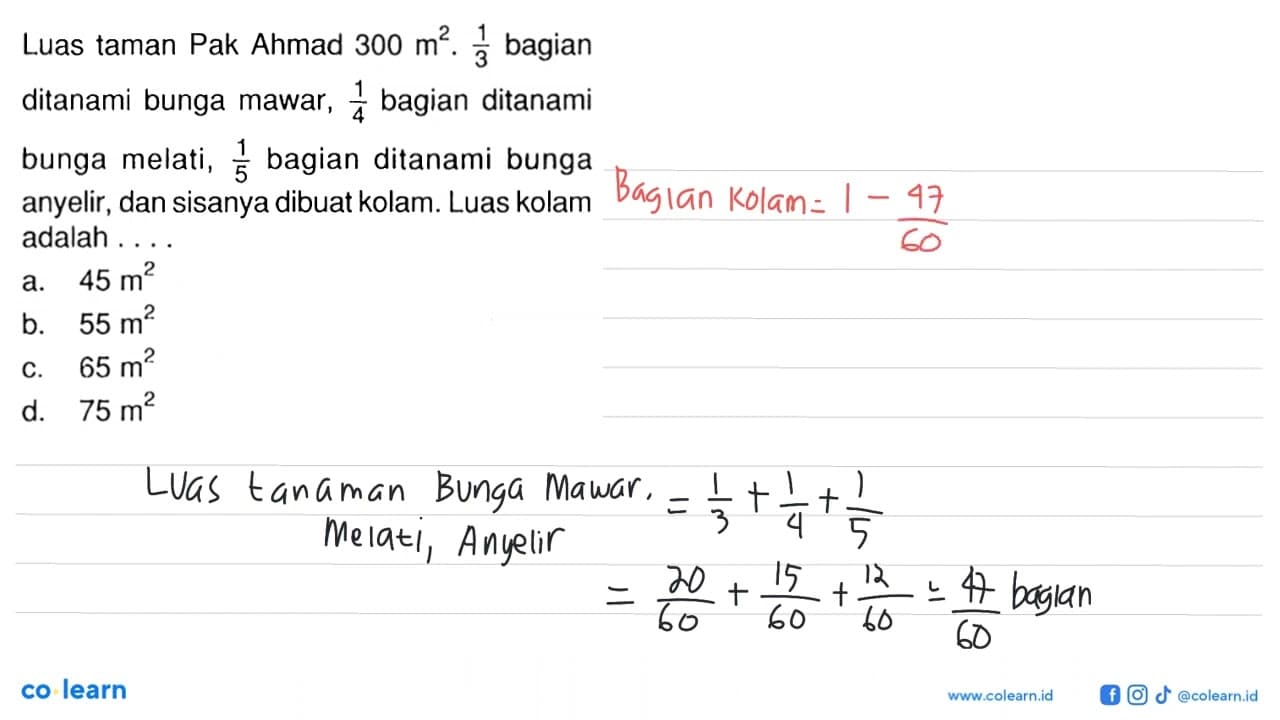 Luas taman Pak Ahmad 300 m². 1/3 bagian
ditanami bunga mawar, 1/4 bagian ditanami
bunga melati, 1/5 bagian ditanami bunga
anyelir, dan sisanya dibuat kolam. Luas kolam
adalah . . . .
a. 45 m²
b. 55 m²
c. 65 m²
d. 75 m²
Bagian Kolam = 1 - 47/60
Luas tanaman Bunga Mawar, = 1/3 + 1/4 + 1/5
Melati, Anyelir
= 20/60 + 15/60 + 12/60 = 47/60 bagian
co learn
www.colearn.id
@colearn.id